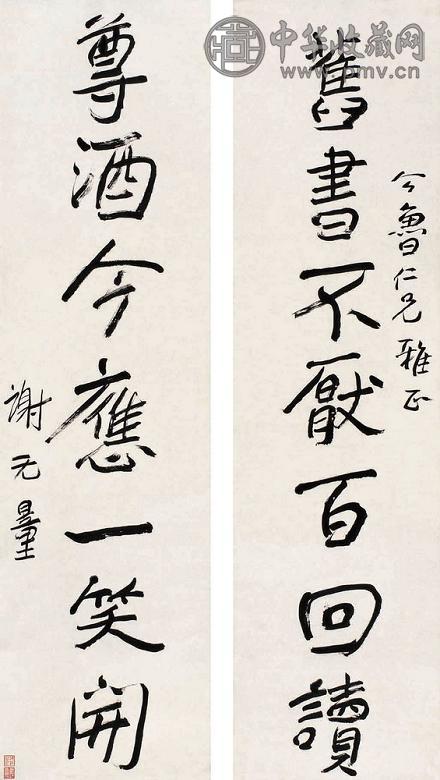 舊書不厭百回讀
今魯仁兄雅正
尊酒今應一笑開
謝无量
中华收藏网
www.pmv.cn